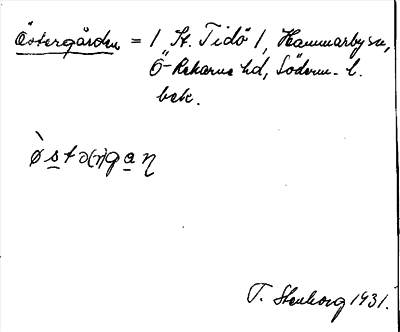 Östergården = / St. Tidö /, Hammarby sn,
Ö-Rekarne hd, Söderm. l.
bek.
østə(r)gaɳ
T. Stenborg 1931.